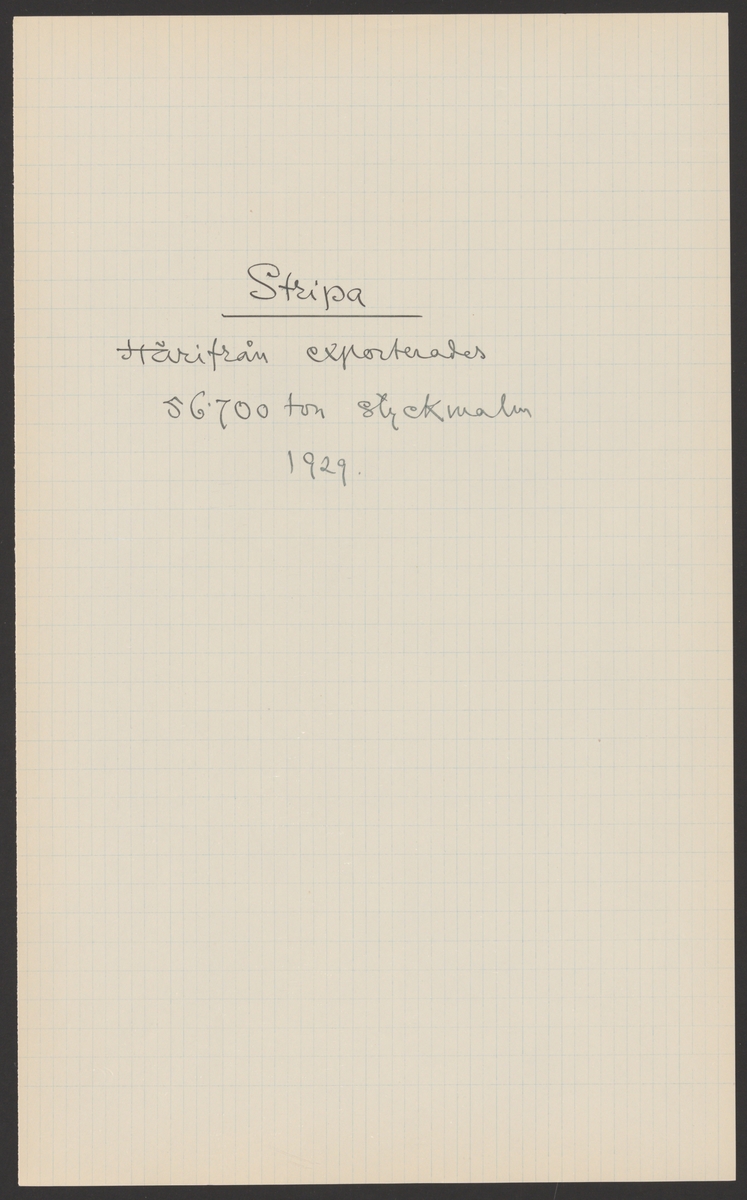 Stripa
Härifrån exporterades
56.700 ton styckmalm
1929.